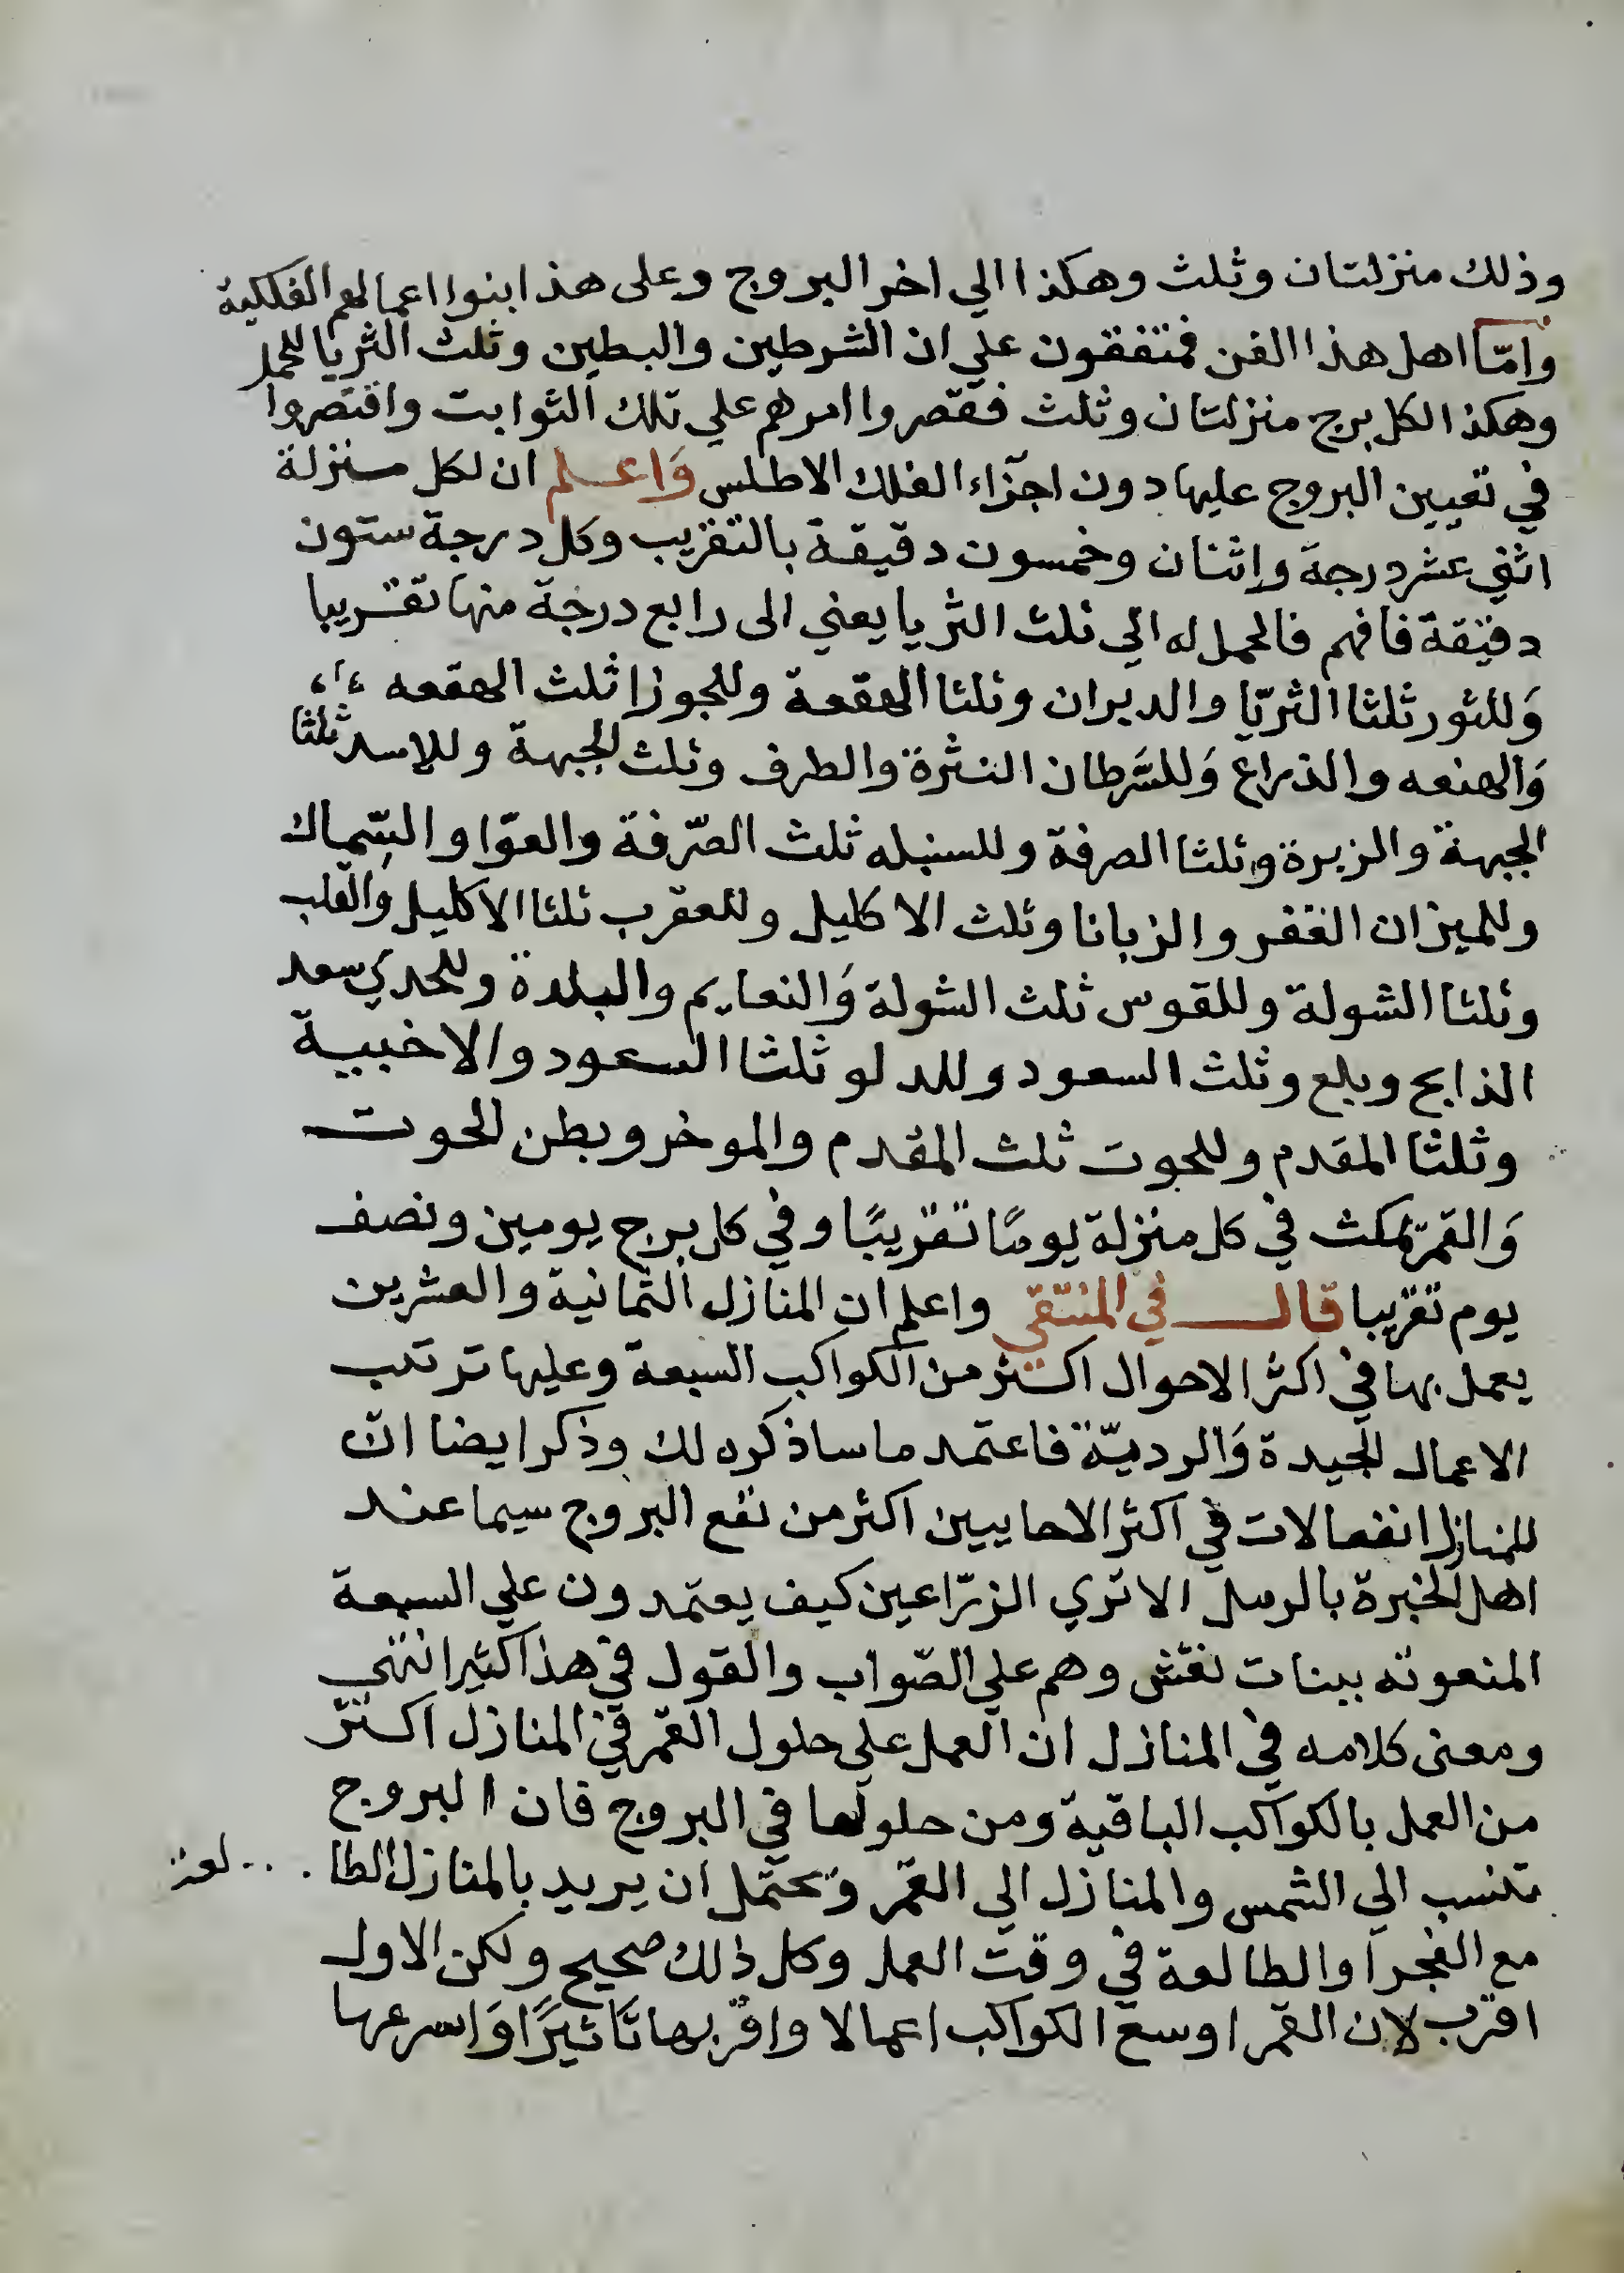 وذلك منزلتان وثلث وهكذا الي اخر البروج وعلى هذا بنوا اعمالهم الفلكية
وامّا اهل هذا الفن فمتفقون علي ان الشرطين والبطين وثلث الثريا للحمل
وهكذا لكل برج منزلتان وثلث فقصروا امرهم علي تلك الثوابت واقتصروا
في تعيين البروج عليها دون اجزاء الفلك الاطلس وَاعلم ان لكل منزلة
اثني عشر درجة واثنان وخمسون دقيقة بالتقريب وكل درجة ستون
دقيقة فافهم فالحمل له الي ثلث الثريا يعني الى رابع درجة منها تقريبا
وَللثور ثلثا الثريّا والدبران وثلثا الهقعة وللجوزا ثلث الهقعه
وَالهنعه والذراع وَللسَّرطان النثرة والطرف وثلث الجبهة وللاسد ثلثا
الجبهة والزبرة وثلثا الصرفة وللسنبله ثلث الصّرفة والعوّا والسّماك
وللميزان الغفر والزبانا وثلث الاكليل وللعقرب ثلثا الاكليل والقلب
وثلثا الشولة وللقوس ثلث الشولة وَالنعايم والبلدة وللجدي سعد
الذابح وبلع وثلث السعود وللدلو ثلثا السعود والاخبية
وثلثا المقدم وللحوت ثلث المقدم والموخر وبطن الحوت
وَالقمر يمكث في كل منزلة يومًا تقريبًا وفي كل برج يومين ونصف
يوم تقريبا قال في المنتقي واعلم ان المنازل الثمانية والعشرين
يعمل بها في اكثر الاحوال اكثر من الكواكب السبعة وعليها ترتب
الاعمال الجيدة وَالرديّة فاعتمد ما ساذكره لك وذكر ايضا انّ
للمنازل انفعالات في اكثر الاحايين اكثر من نفع البروج سيما عند
اهل الخبرة بالرمل الا تري الزرّاعين كيف يعتمدون علي السبعة
المنعوته ببنات نعش وهم علي الصّواب والقول في هذا كثير انتهي
ومعنى كلامه في المنازل ان العمل على حلول القمر في المنازل اكثر
من العمل بالكواكب الباقية ومن حلولها في البروج فان البروج
تنسب الي الشمس والمنازل الي القمر وَيحتمل ان يريد بالمنازل الطا..لعة
مع الفجر او الطالعة في وقت العمل وكل ذلك صحيح ولكن الاول
اقرب لان القمر اوسع الكواكب اعمالا واقربها تاثيرًا وَاسرعها